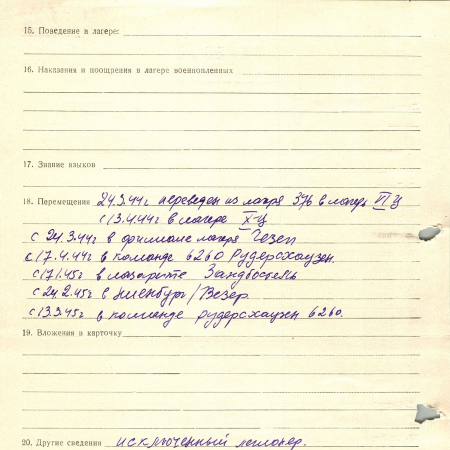 15. Поведение в лагере:
16. Наказания и поощрения в лагере военнопленных
17. Знание языков
18. Перемещения 24.3.44г переведен из лагеря 376 в лагерь VI Ц
с 13.4.44г в лагере X Ц
с 24.3.44г в филиале лагеря Гезеп
с 17.4.44г в команде 6260 Рудерсхаузен.
с 17.1.45г в лазарете Зандбостель
с 24.2.45г в Ниенбург/Везер
с 13.3.45г в команде рудерсхаузен 6260.
19. Вложения в карточку
20. Другие сведения исключенный легионер.